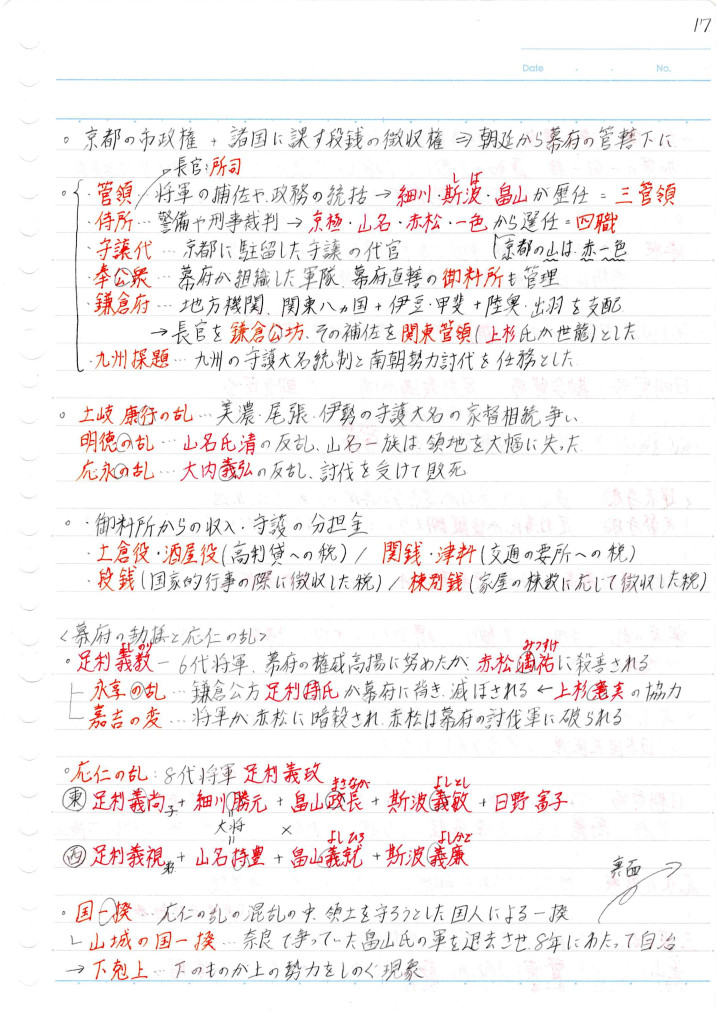 17
Date ・ ・ No.
◦ 京都の市政権 + 諸国に課す段銭の徴収権 ⇒ 朝廷から幕府の管轄下に
長官:所司
しば
◦ ・管領 … 将軍の補佐や、政務の統括 → 細川・斯波・畠山が歴任 = 三管領
・侍所 … 警備や刑事裁判 → 京極・山名・赤松・一色から選任 = 四職
・守護代 … 京都に駐留した守護の代官 京都の山は、赤一色
・奉公衆 … 幕府が組織した軍隊、幕府直轄の御料所も管理
・鎌倉府 … 地方機関、関東八ヵ国 + 伊豆・甲斐 + 陸奥・出羽を支配
→ 長官を鎌倉公坊、その補佐を関東管領(上杉氏が世龍)とした
・九州探題 … 九州の守護大名統制と南朝勢力討代を任務とした
◦ 土岐康行の乱 … 美濃・尾張・伊勢の守護大名の家督相続争い
明徳の乱 … 山名氏清の反乱、山名一族は領地を大幅に失った
応永の乱 … 大内義弘の反乱、討伐を受けて敗死
◦ ・御料所からの収入・守護の分担金
・土倉役・酒屋役(高利貸への税) / 関銭・津料(交通の要所への税)
・段銭(国家的行事の際に徴収した税) / 棟別銭(家屋の棟数に応じて徴収した税)
<幕府の動揺と応仁の乱>
よしのり みつすけ
・足利義教 – 6代将軍、幕府の権威高揚に努めたが、赤松満祐に殺害される
永享の乱 … 鎌倉公方足利持氏が幕府に背き、滅ぼされる ← 上杉憲実の協力
嘉吉の変 … 将軍が赤松に暗殺され、赤松は幕府の討伐軍に破られる
◦応仁の乱:8代将軍 足利義政
まさなが よしとし
東 足利義尚子 + 細川勝元 + 畠山政長 + 斯波義敏 + 日野富子
大将 ×
よしひろ よしかど
西 足利義視弟 + 山名持豊 + 畠山義就 + 斯波義廉
裏面
・国一揆 … 応仁の乱の混乱の中、領土を守ろうとした国人による一揆
山城の国一揆 … 奈良で争っていた畠山氏の軍を退去させ8年にわたって自治
→ 下剋上 … 下のものが上の勢力をしのぐ現象